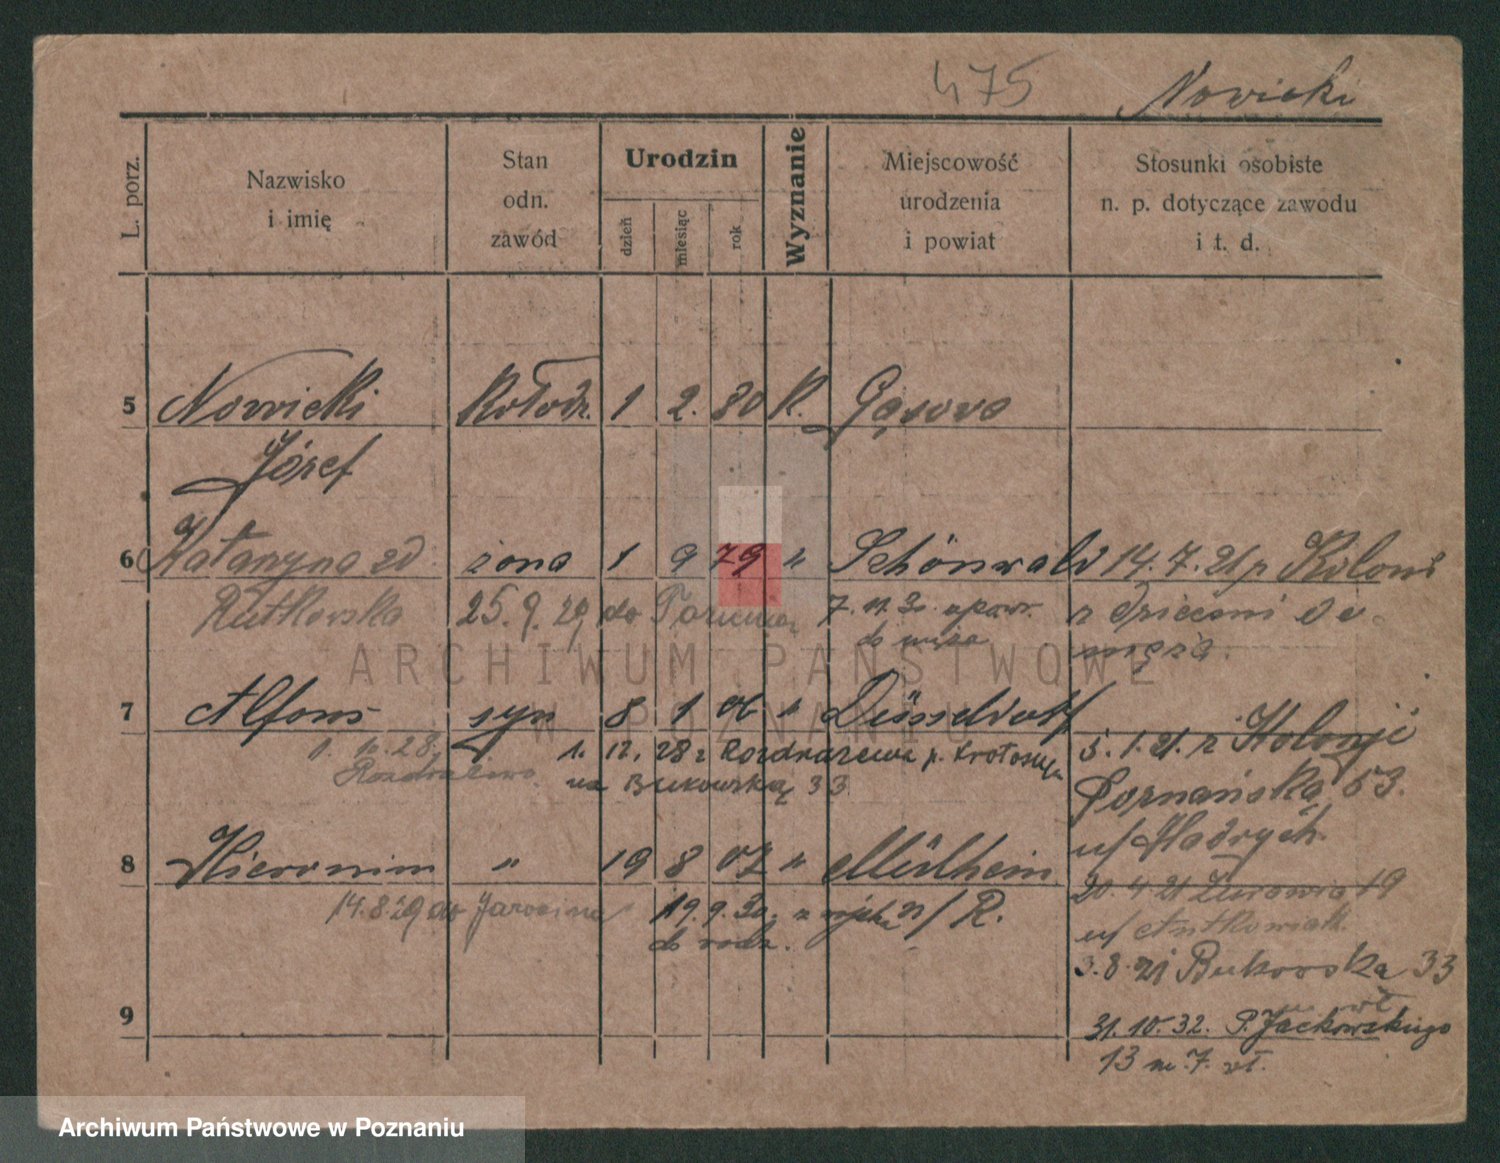 475 Nowicki
L. porz.
Nazwisko
i imię
Stan
odn.
zawód
Urodzin
dzień
miesiąc
rok
Wyznanie
Miejscowość
urodzenia
i powiat
Stosunki osobiste
n. p. dotyczące zawodu
i t. d.
5 Nowicki Kołodz. 1 2. 80 K. Gąsawa
Józef
6 Katarzyna zd żona 1 9 79 " Schönwald 14.7.21 z Kolonii
Rutkowska 25.9.29 do 7.11.30. z dziećmi do
do męża męża.
7 Alfons syn 8 1 06 " Düsseldorf
5.1.21. z Kolonji
1. 12. 28 z Rozdrażewa p. Krotoszyn
na Bukowską 33
Poznańska 53.
8 Hieronim " 19 8 07 " Mülheim
n/R.
20.4.21 Żurawia 19
14.8.29 do Jarocina 19.9.30. z wojska
do rodz.
u/ Antkowiak
3.8.21 Bukowska 33
9
31.10.32. P. Jackowskiego
13 m. 7. wł.
ARCHIWUM PAŃSTWOWE
W POZNANIU
Archiwum Państwowe w Poznaniu